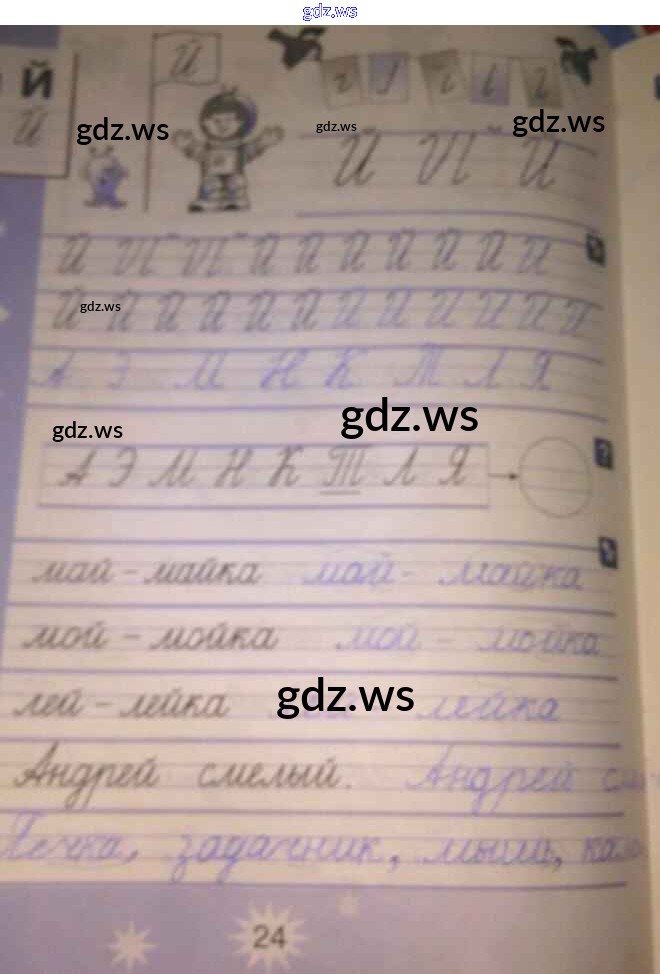 gdz.ws
й Й
Й
gdz.ws
gdz.ws
gdz.ws
Й И Й
Й И И Й Й Й Й Й Й Й
gdz.ws
Й Й Й Й Й Й Й Й Й Й Й Й
А Э М Н К Т Л Я
gdz.ws
gdz.ws
А Э М Н К Т Л Я
?
май – майка май - майка
мой – мойка мой - мойка
лей – лейка лейка
gdz.ws
Андрей смелый. Андрей
задачник, мышь,
24